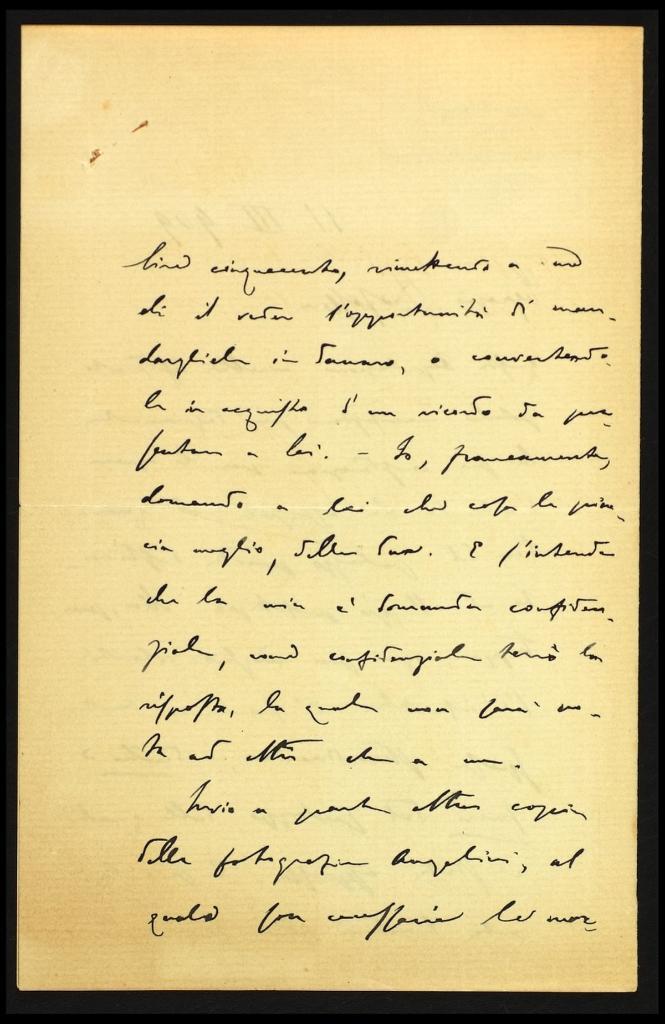 lire cinquecento, rimettendo a me
di il veder l'opportunità di man-
dargliele in danaro, o convertendo-
le in acquisto d'un ricordo da pre-
sentare a lei. – Io, francamente,
domando a lei che cosa le piac-
cia meglio, delle due. E s'intende
che la mia è domanda confiden-
ziale, come confidenziale terrò la
risposta, la quale non sarà no-
ta ad altri che a me.
Invio a parte altre copie
della fotografia Angelini, al
quale